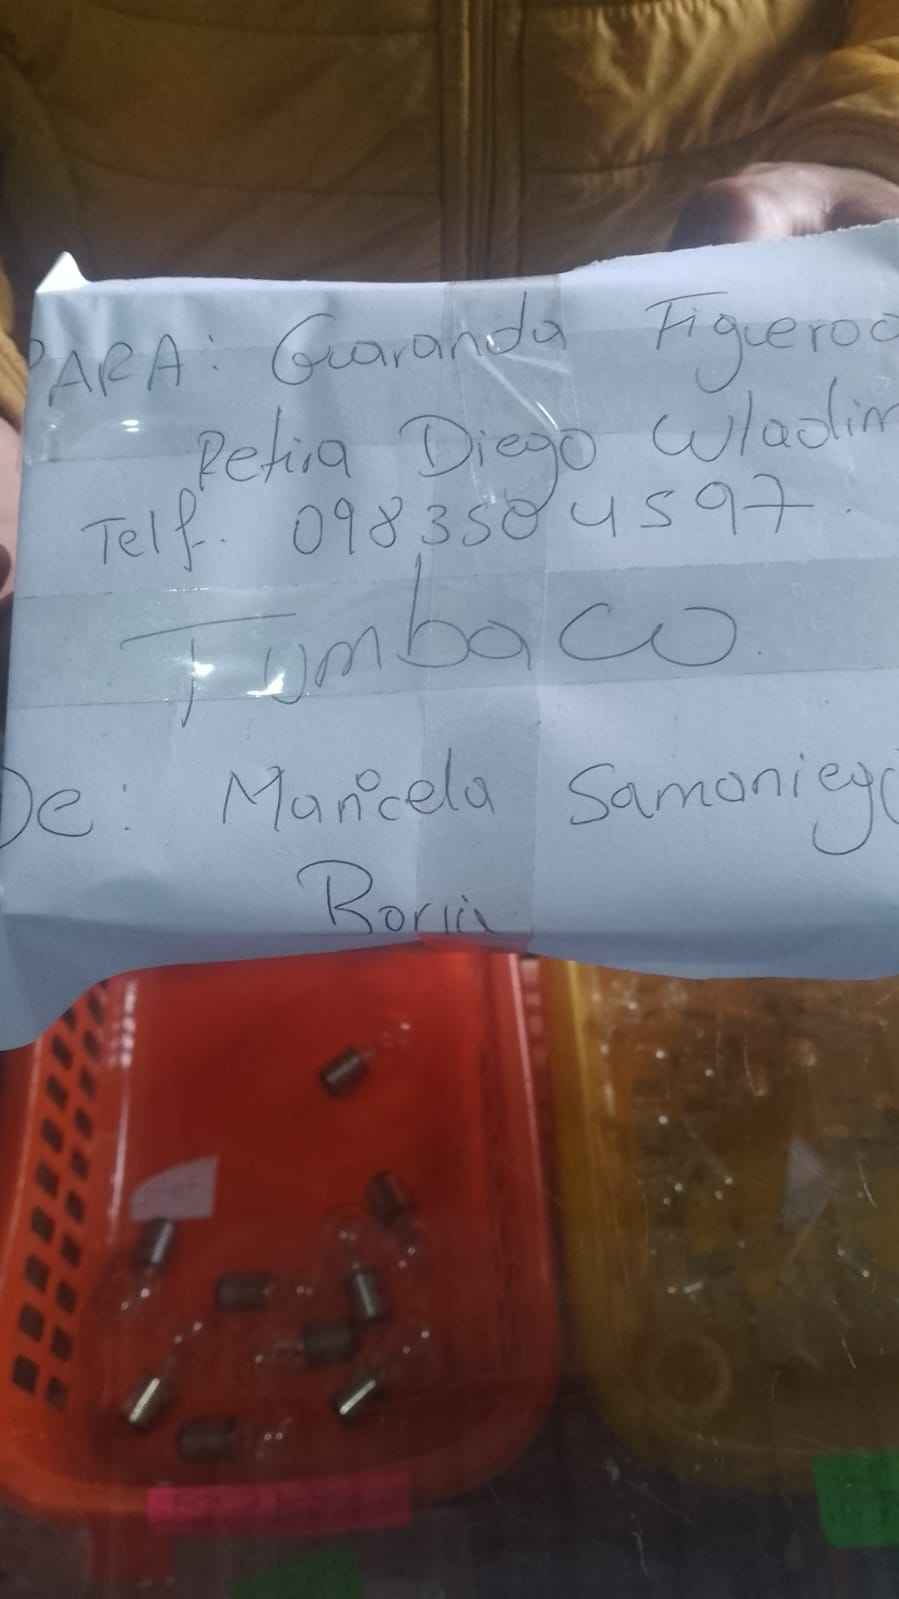 PARA: Guaranda Figueroa
Petira Diego Wladim
Telf. 0983504597.
Tumbaco.
De: Maricela Samaniego
Borja